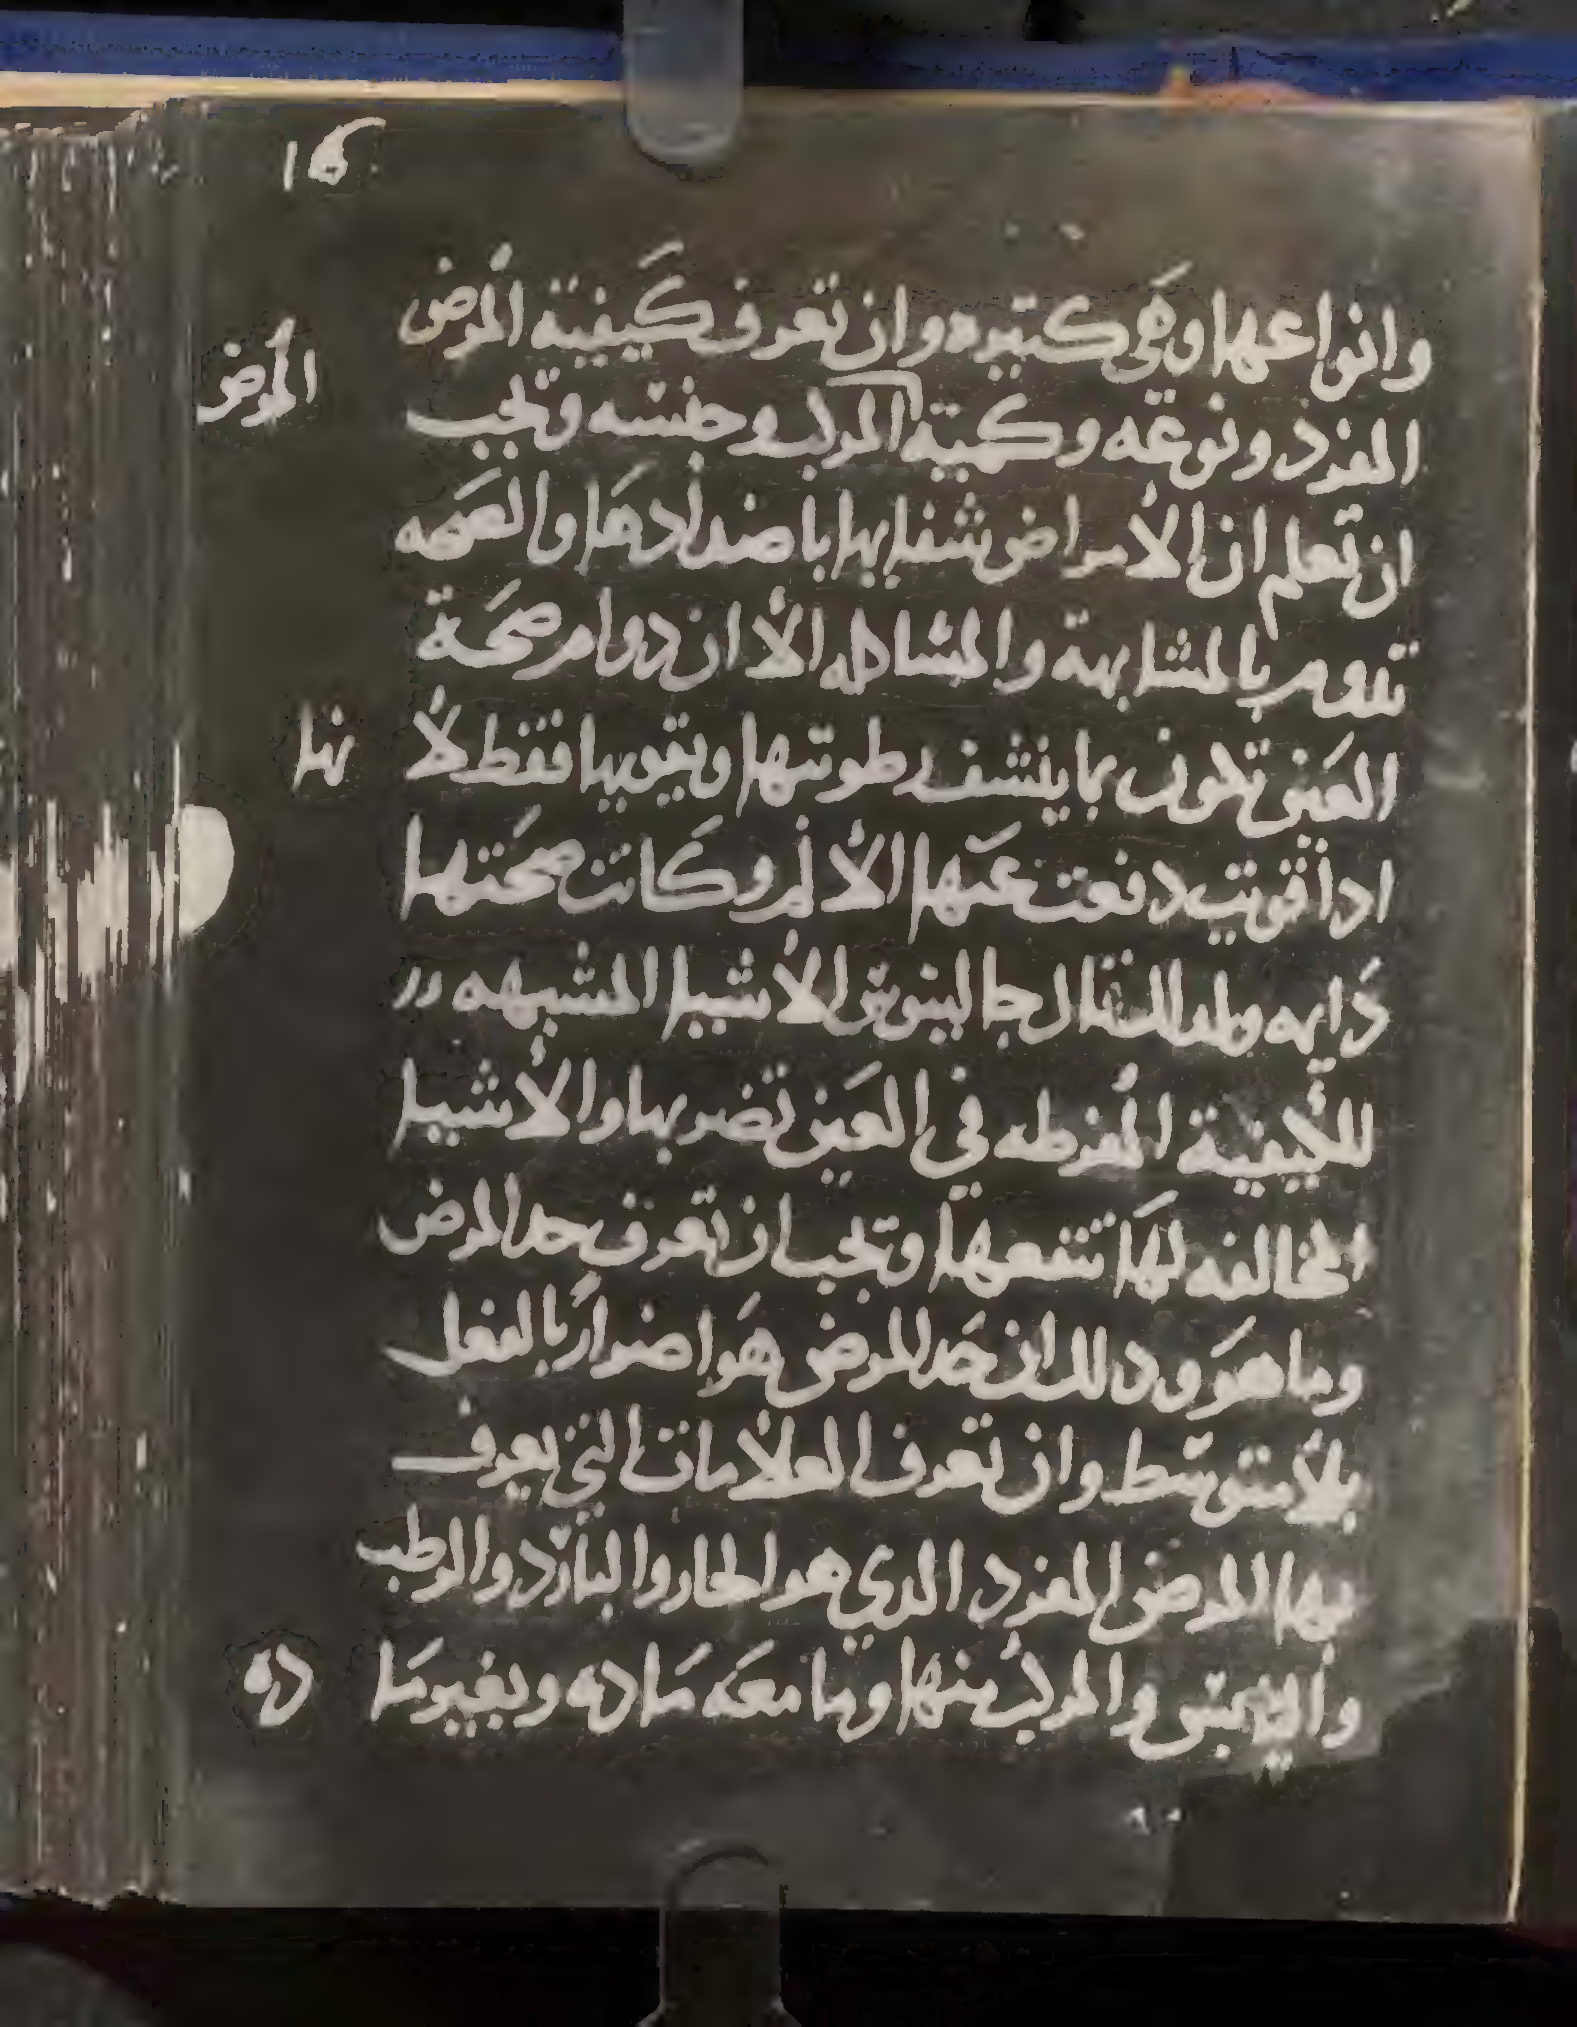 16
وانواعها وهي كتيره وان تعرف كيفية المرض
المفرد ونوعه وكمية المركب وجنسه ويجب المرض
ان تعلم ان الامراض شفايها باضدادها والصحه
تدوم بالمشابهة والمشاكله الا ان دوام صحة
العين تكون بما ينشف رطوبتها ويقويها فقط لا نها
ادا قويت دفعت عنها الالم وكانت صحتها
دايمه ولدلك قال جالينوس الاشيا المشبهه
للكيفية المفرطه في العين تضر بها والاشيا
المخالفه لها تنفعها ويجب ان تعرف حد المرض
وما هو ودلك ان حد المرض هو اضرار بالفعل
بلا متوسط وان تعرف العلامات التي يعرف
بها المرض المفرد الدي هو الحار والبارد والرطب
واليابس والمركب منها وما معه ماده وبغير ما ده